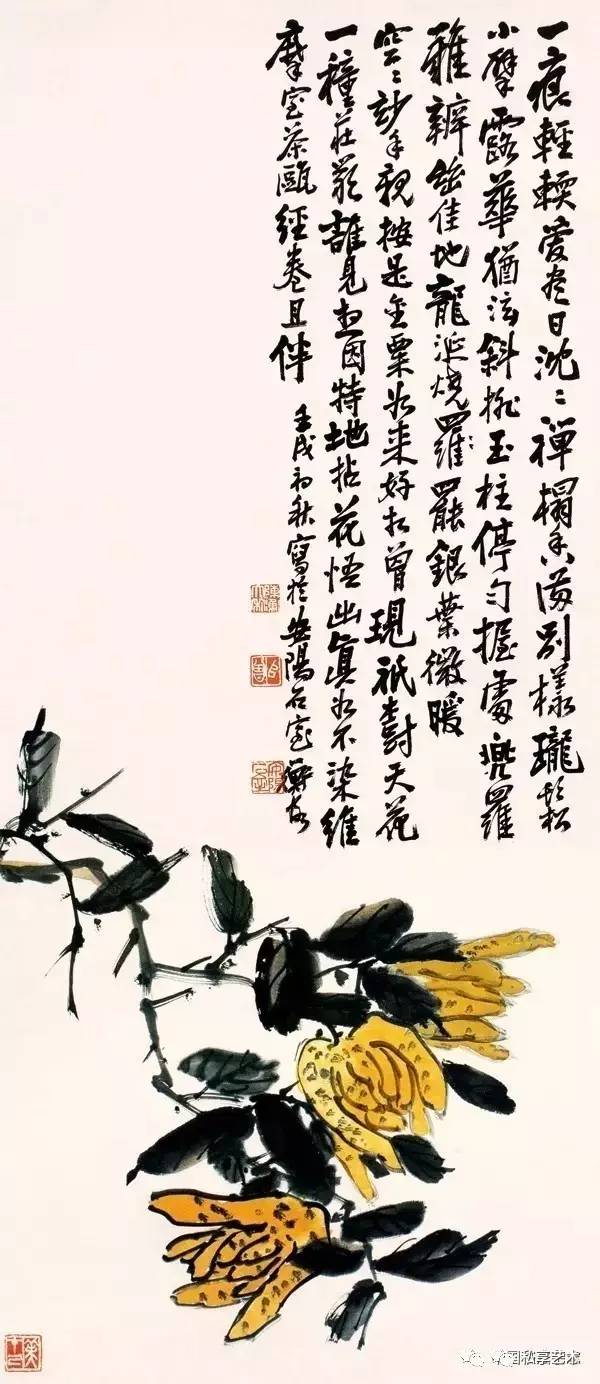 一痕輕輭愛盡日沈沈禪榻香滿別樣瓏鬆
小擘露華猶泫斜挑玉柱停勻握處兜羅
辨佳地龍涎燒罷銀葉微暖
空空妙手親按是金粟如來好相曾現祇對天花
一種莊嚴誰見想因特地拈花悟出真如不染維
摩室茶甌經卷且伴
壬戌初秋寫於安陽石室
私享艺术